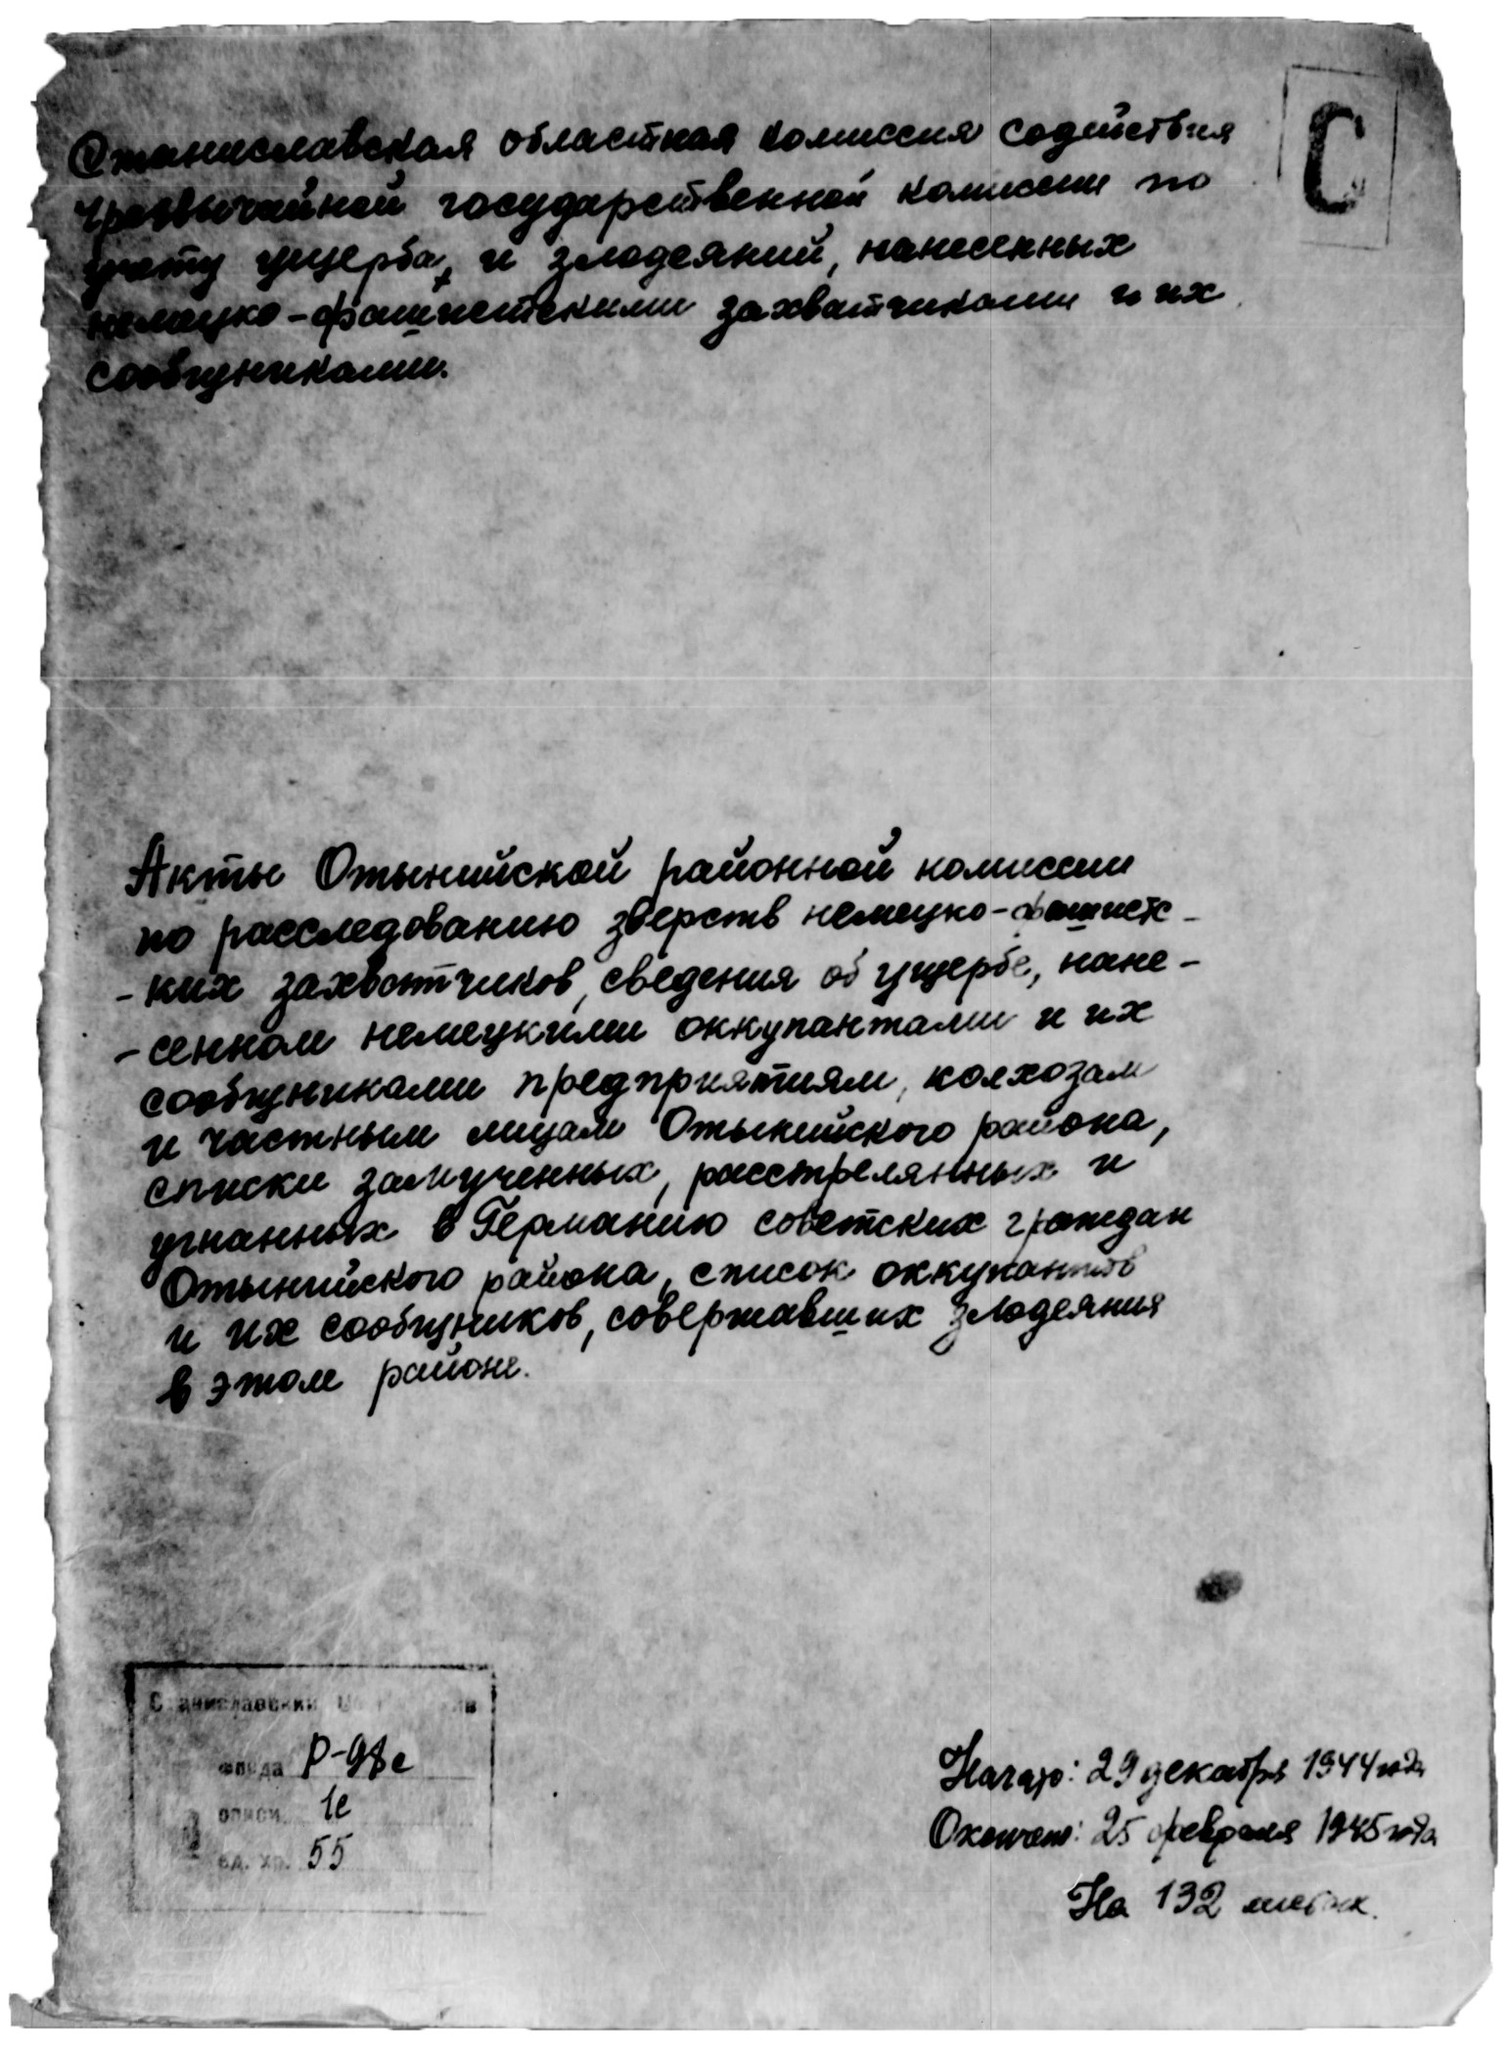 С
Станиславская областная комиссия содействия
чрезвычайной государственной комиссии по
учету ущерба, и злодеяний, нанесенных
немецко-фашистскими захватчиками и их
сообщниками.
Акты Отынийской районной комиссии
по расследованию зверств немецко-фашистс-
-ких захватчиков, сведения об ущербе, нане-
-сенном немецкими оккупантами и их
сообщниками предприятиям, колхозам
и частным лицам Отынийского района,
списки замученных, расстрелянных и
угнанных в Германию советских граждан
Отынийского района, список оккупантов
и их сообщников, совершавших злодеяния
в этом районе.
Станиславский
фонда Р-98с
описи 1с
ед. хр. 55
Начато: 29 декабря 1944 года
Окончено: 25 февраля 1945 года
На 132 листах.